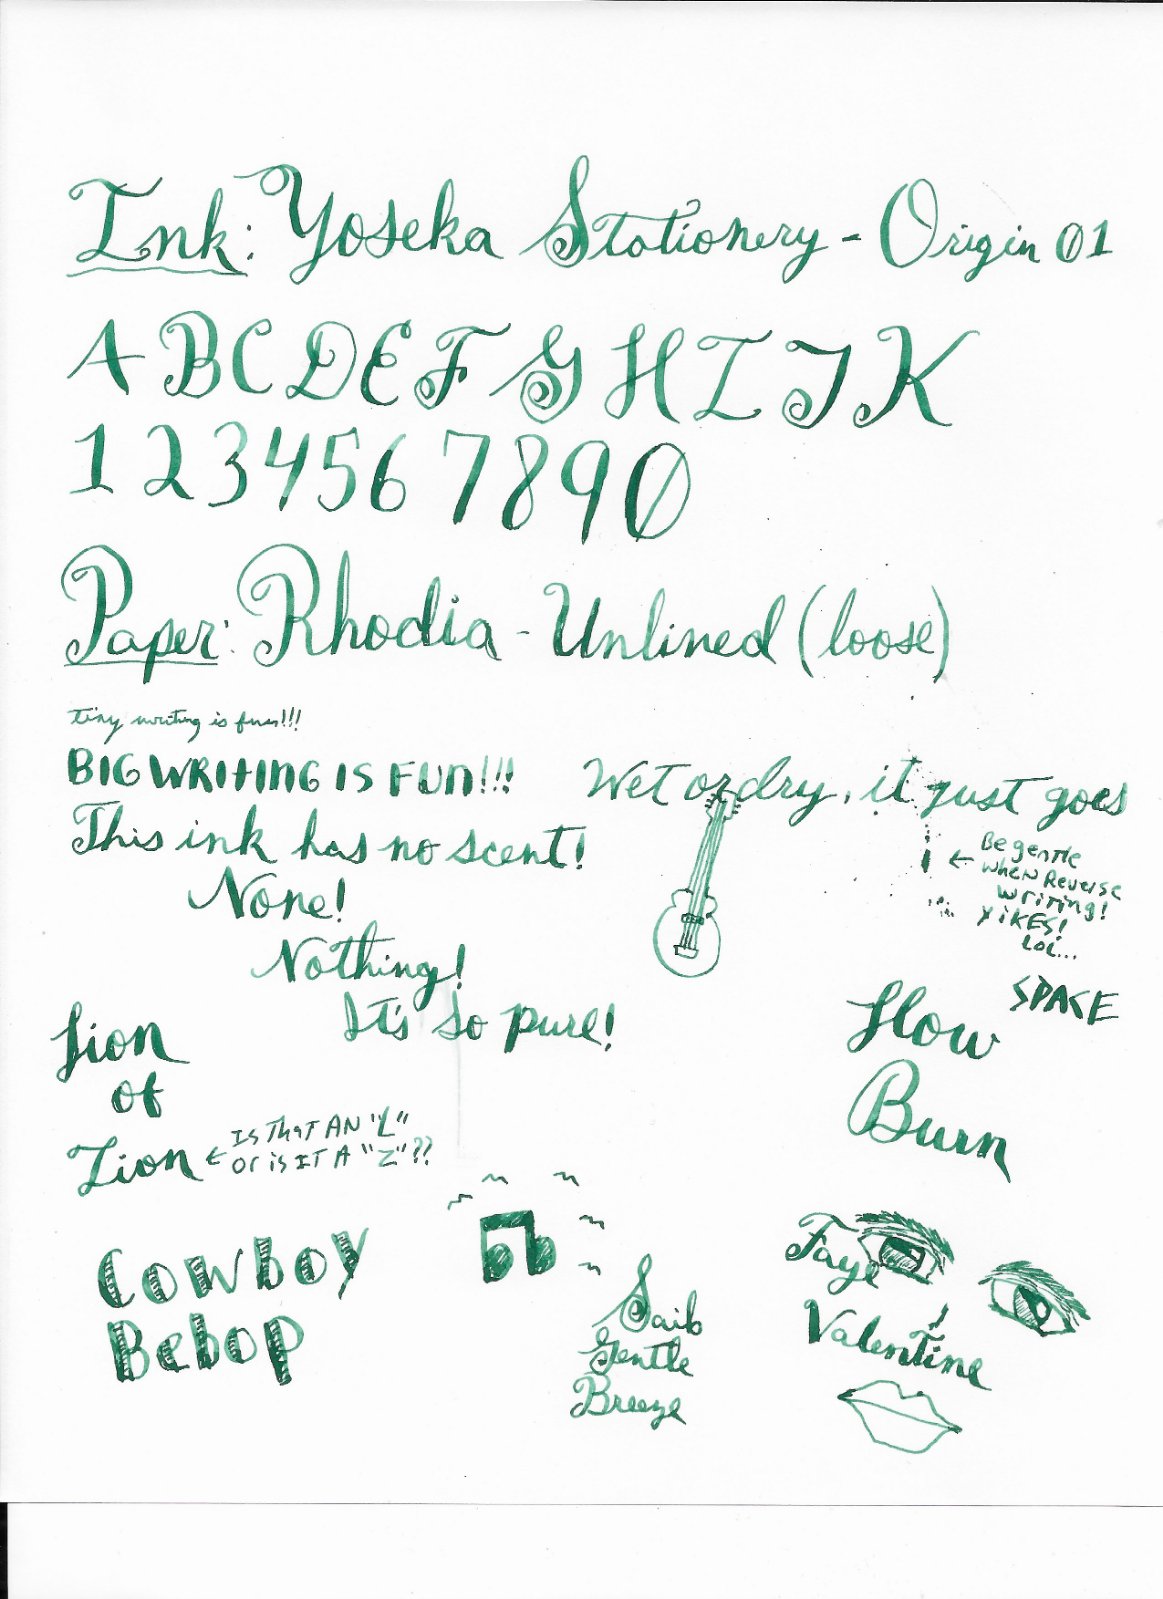 Ink: Yoseka Stationery - Origin 01
A B C D E F G H I J K
1 2 3 4 5 6 7 8 9 0
Paper: Rhodia - Unlined (loose)
tiny writing is fun!!!
BIG WRITING IS FUN!!!
Wet or dry, it just goes
This ink has no scent!
Be gentle
when Reverse
writing!
YIKES!
LOL...
None!
Nothing!
It's so pure!
SPACE
Slow
Burn
Lion
of
Zion
Is That AN "L"
or is IT A "Z"??
Cowboy
Bebop
Saib
Gentle
Breeze
Faye
Valentine